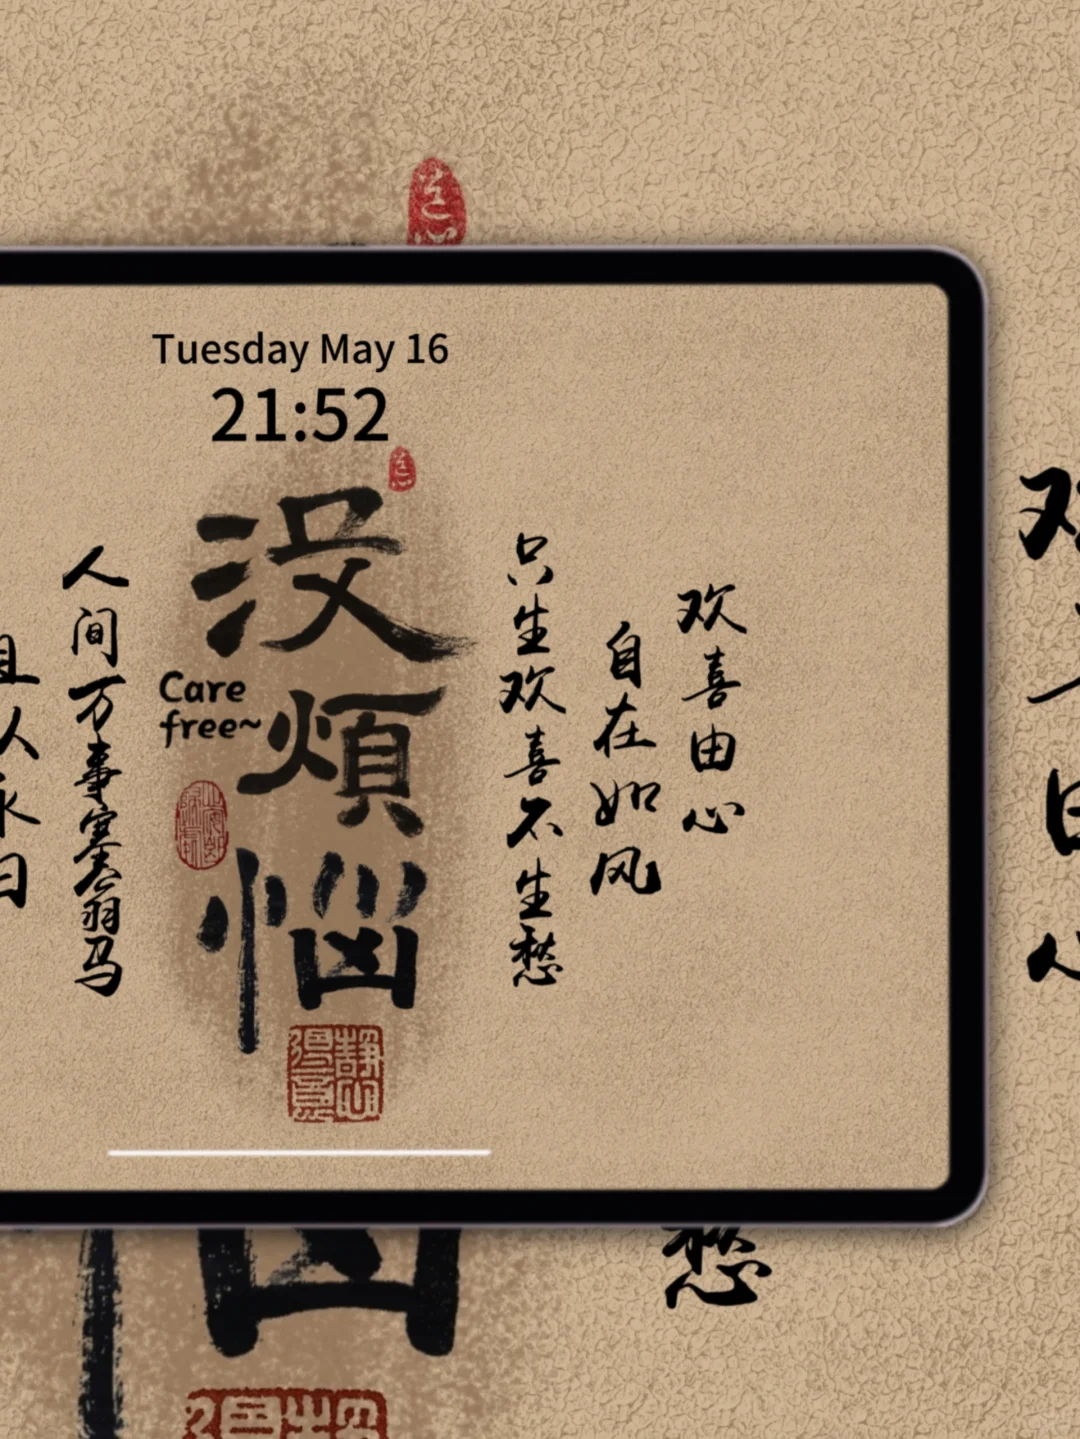 Tuesday May 16
21:52
欢喜由心
自在如风
只生欢喜不生愁
没煩惱
Care
free~
人间万事塞翁马
人永日
静心得意
愁